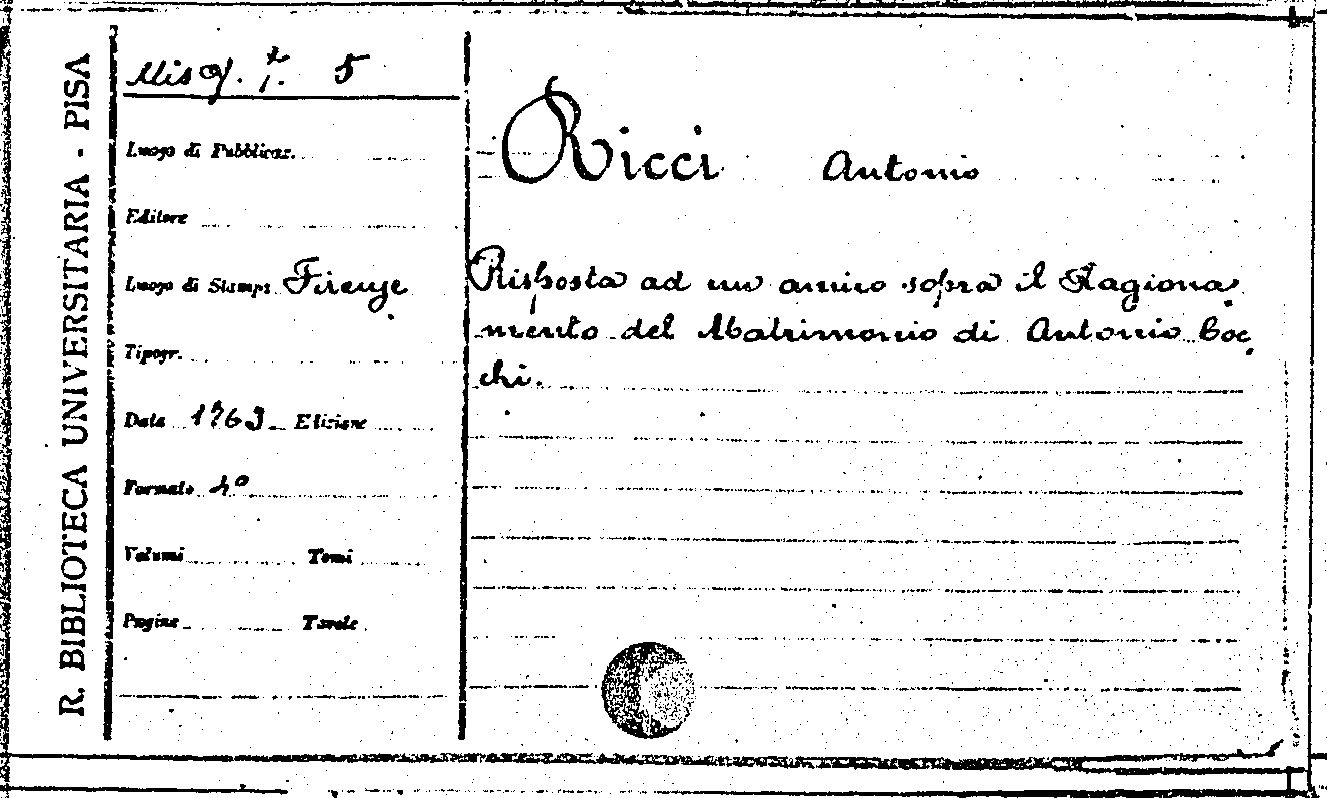 R. BIBLIOTECA UNIVERSITARIA - PISA
5
Luogo di Pubblicaz.
Editore
Luogo di Stampa Firenze
Tipogr.
Data 1763 Edizione
Formato 4º
Volumi Tomi
Pagine Tavole
Ricci Antonio
Risposta ad un amico sopra il Ragiona
mento del Matrimonio di Antonio Coc
chi.